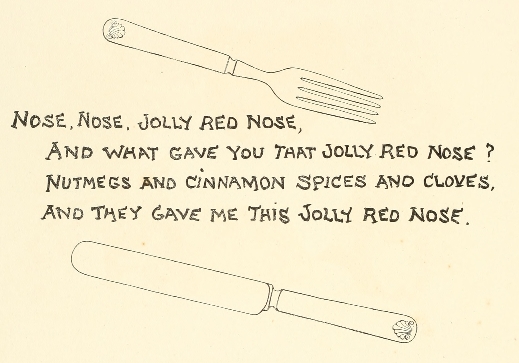 NOSE, NOSE, JOLLY RED NOSE,
AND WHAT GAVE YOU THAT JOLLY RED NOSE?
NUTMEGS AND CINNAMON SPICES AND CLOVES,
AND THEY GAVE ME THIS JOLLY RED NOSE.